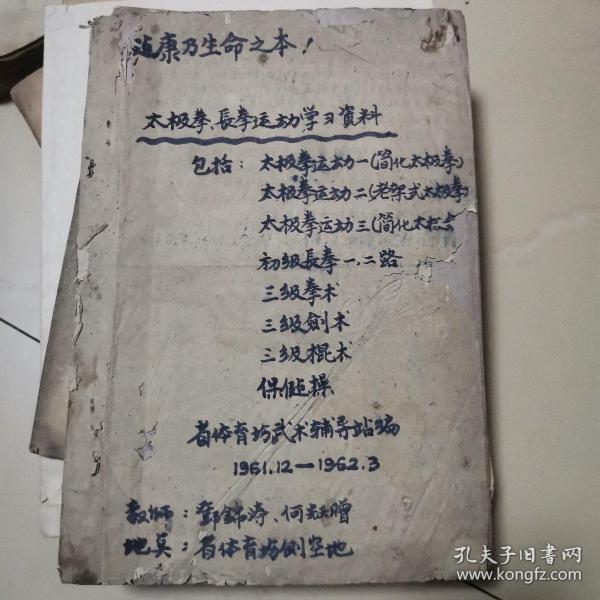 健康乃生命之本!
太极拳、長拳运动学习資料
包括: 太极拳运动一(简化太极拳)
太极拳运动二(老架式太极拳)
太极拳运动三(简化太极
初级長拳一、二路
三级拳术
三级劍术
三级棍术
保健操
省体育场武术辅导站编
1961.12—1962.3
教师: 鄧錦涛、何
地点: 省体育场侧空地
孔夫子旧书网
www.kongfz.com